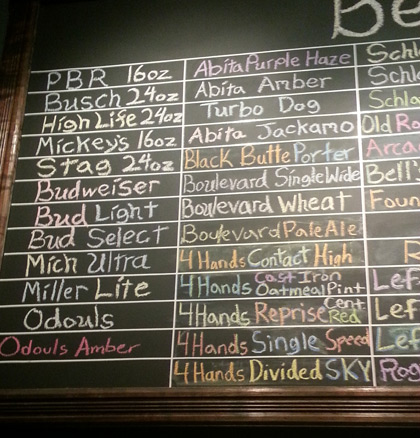 Be
PBR 16oz
Busch 24oz
High Life 24oz
Mickey's 16oz
Stag 24oz
Budweiser
Bud Light
Bud Select
Mich Ultra
Miller Lite
Odouls
Odouls Amber
Abita Purple Haze
Abita Amber
Turbo Dog
Abita Jackamo
Black Butte Porter
Boulevard Single Wide
Boulevard Wheat
Boulevard Pale Ale
4 Hands Contact High
4 Hands Cast Iron Oatmeal Pint
4 Hands Reprise Cent Red
4 Hands Single Speed
4 Hands Divided SKY
Schl
Schl
Schla
Old Ro
Arca
Bell's
Foun
R
Lef
Lef
Lef
Rog